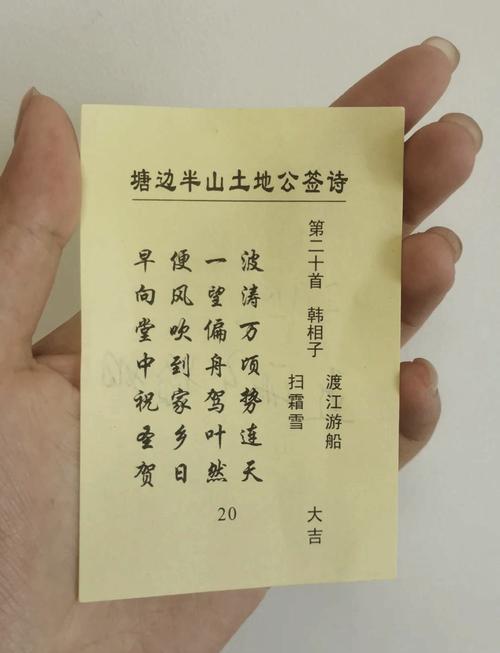 塘边半山土地公签诗
第二十首 韩相子
渡江游船
扫霜雪
大吉
波涛万顷势连天
一望偏舟驾叶然
便风吹到家乡日
早向堂中祝圣贺
20